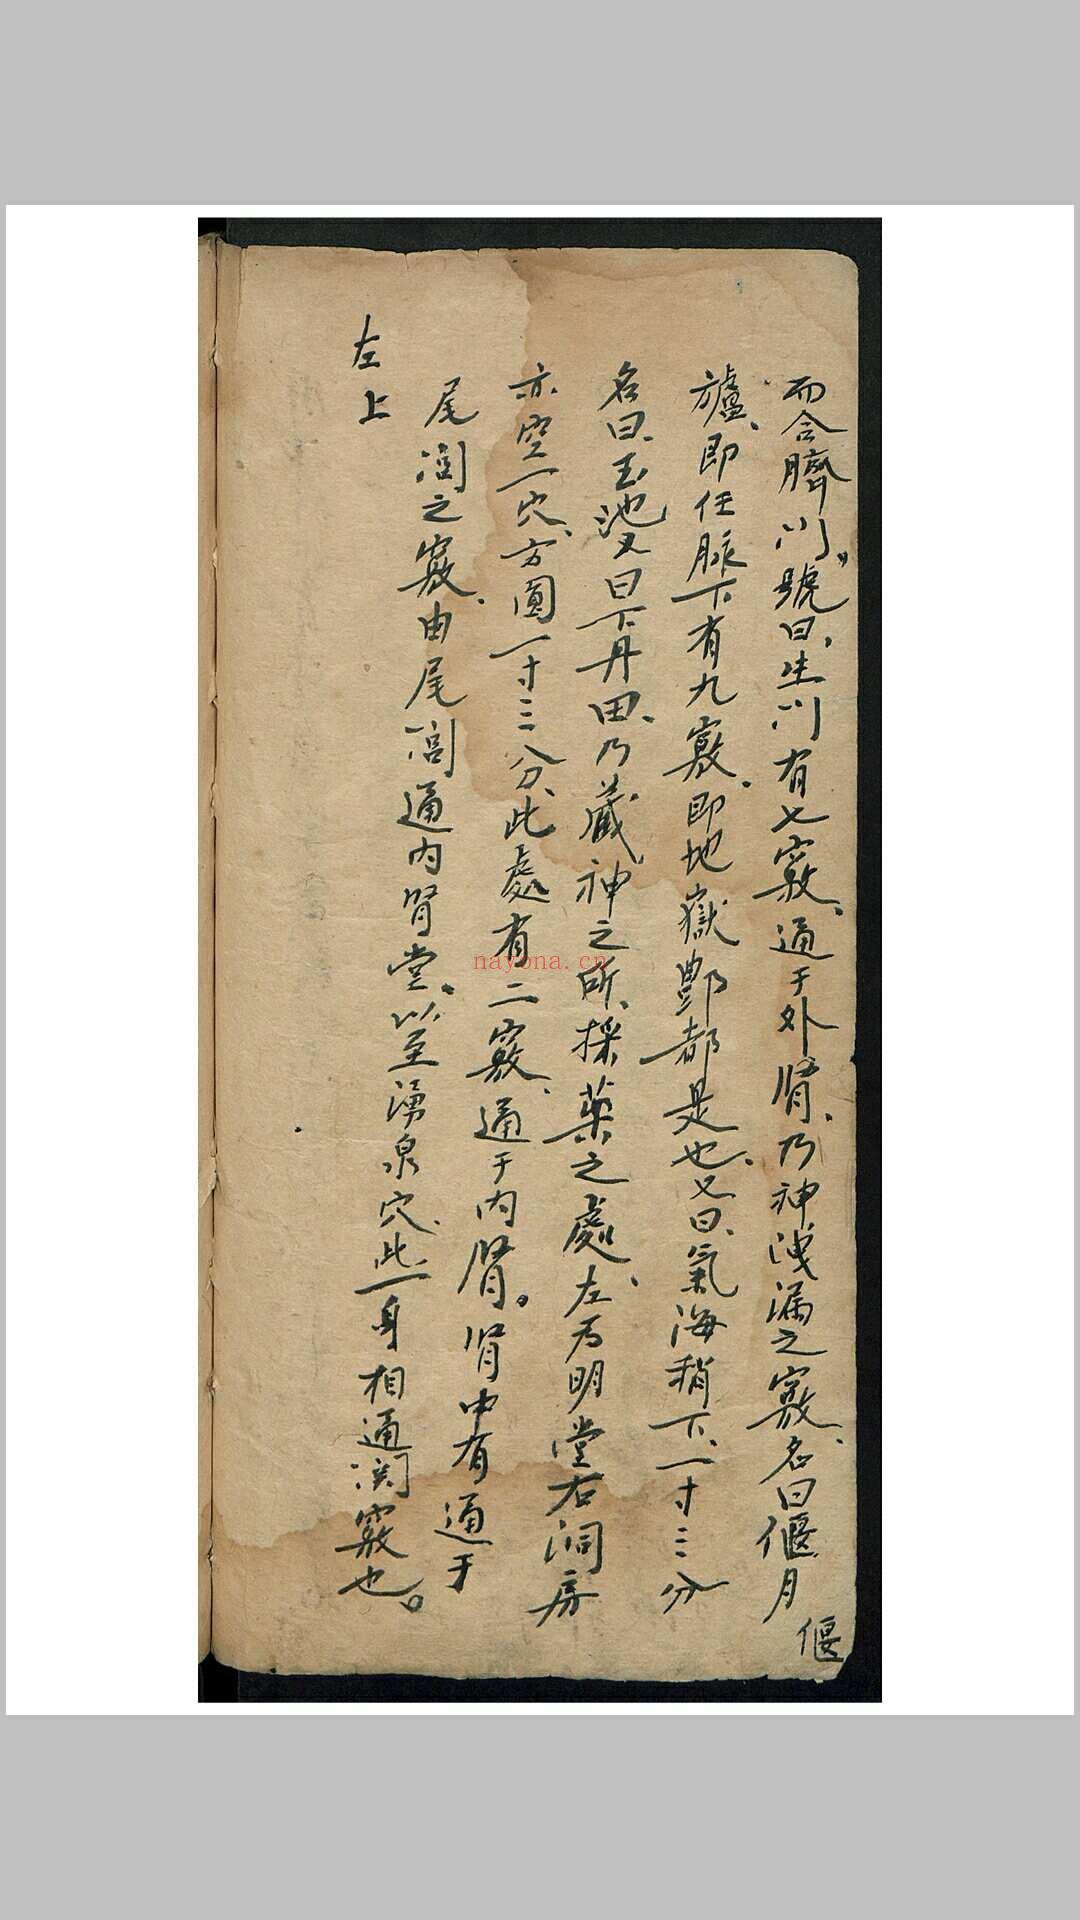 而合臍门號曰生门有七竅通于外腎乃神洩漏之竅名曰偃月
偃
爐即任脈下有九竅即地嶽酆都是也又曰氣海稍下一寸三分
名曰玉池又曰下丹田乃藏神之所採薬之處左为明堂右洞房
亦空一穴方圓一寸三分此處有二竅通于内腎腎中有通于
尾闾之竅由尾闾通内腎堂以至湧泉穴此一身相通関竅也
左上
nayona.cn